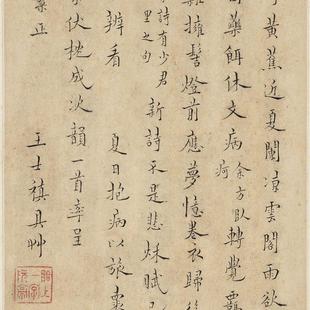 黃蕉近夏闌涼雲閣雨欲
藥餌休文病余方臥病轉覺飄
擁髻燈前應夢憶卷衣歸後
詩有少君
里之句
新詩不是悲秋賦
辨看
夏日抱病以旅
伏枕成次韻一首率呈
正
王士禛具艸